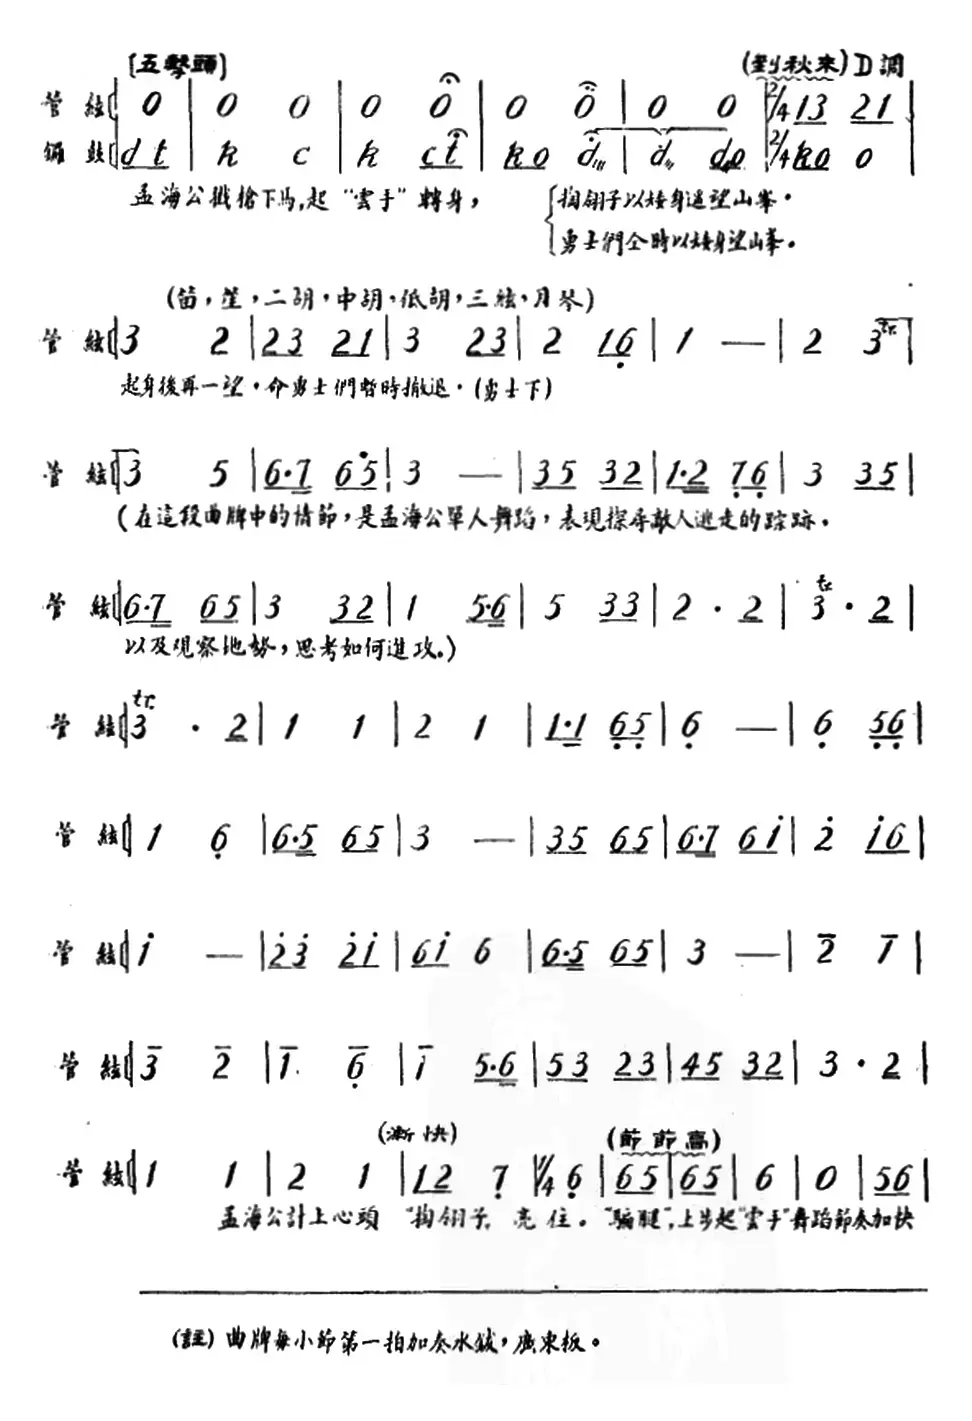 〔五擊頭〕 (劉秋來) D調
管絃 0 | 0 0 | 0 0 | 0 0 | 0 0 | 2/4 13 21 |
鑼鼓 d t | k c | k c t | k 0 d | d d 0 | 2/4 k 0 0 |
孟海公戳槍下馬,起“雲手”轉身, 掏翎子以矮身遥望山峯.
勇士們仝時以矮身望山峯。
(笛,笙,二胡,中胡,低胡,三絃,月琴)
管絃 3 2 | 23 21 | 3 23 | 2 16 | 1 — | 2 3 tr. |
起身後再一望.命勇士們暫時撤退.(勇士下)
管絃 3 5 | 6·7 65 | 3 — | 35 32 | 1·2 76 | 3 35 |
(在這段曲牌中的情節,是孟海公單人舞蹈,表現探尋敵人逃走的踪跡.
管絃 6·7 65 | 3 32 | 1 5·6 | 5 33 | 2 · 2 | tr. 3 · 2 |
以及观察地势,思考如何進攻.)
管絃 tr. 3 · 2 | 1 1 | 2 1 | 1·1 65 | 6 — | 6 56 |
管絃 1 6 | 6·5 65 | 3 — | 35 65 | 6·7 61 | 2 16 |
管絃 1 — | 23 21 | 61 6 | 6·5 65 | 3 — | 2 1 |
管絃 3 2 | 1 6 | 1 5·6 | 53 23 | 45 32 | 3 · 2 |
(漸快) (節節高)
管絃 1 1 | 2 1 | 12 7 | 1/4 6 | 65 | 65 | 6 | 0 | 56 |
孟海公計上心頭 “掏翎子,亮住。“騙腿”,上步起“雲手”舞蹈節奏加快
(註) 曲牌每小節第一拍加奏水鈸,廣東板。